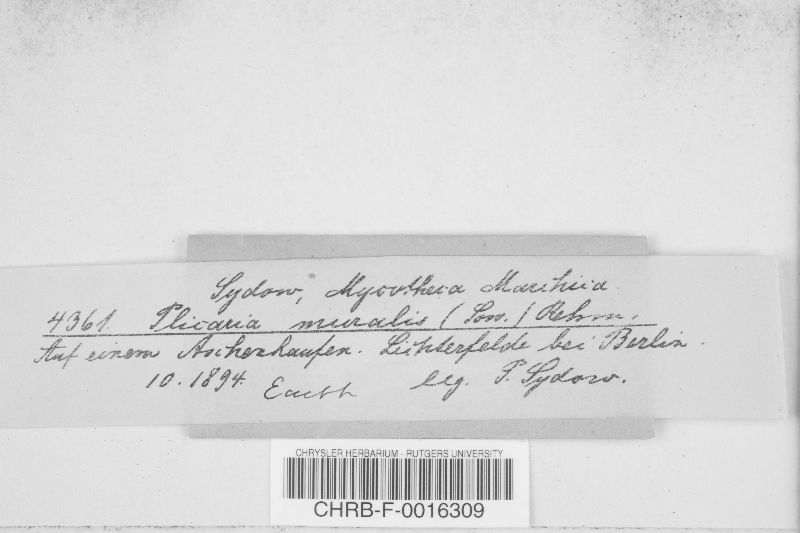 Sydow, Mycotheca Marchica.
4361. Plicaria muralis (Sow.) Rehm.
Auf einem Aschenhaufen. Lichterfelde bei Berlin.
10. 1894. Earth leg. P. Sydow.
CHRYSLER HERBARIUM - RUTGERS UNIVERSITY
CHRB-F-0016309